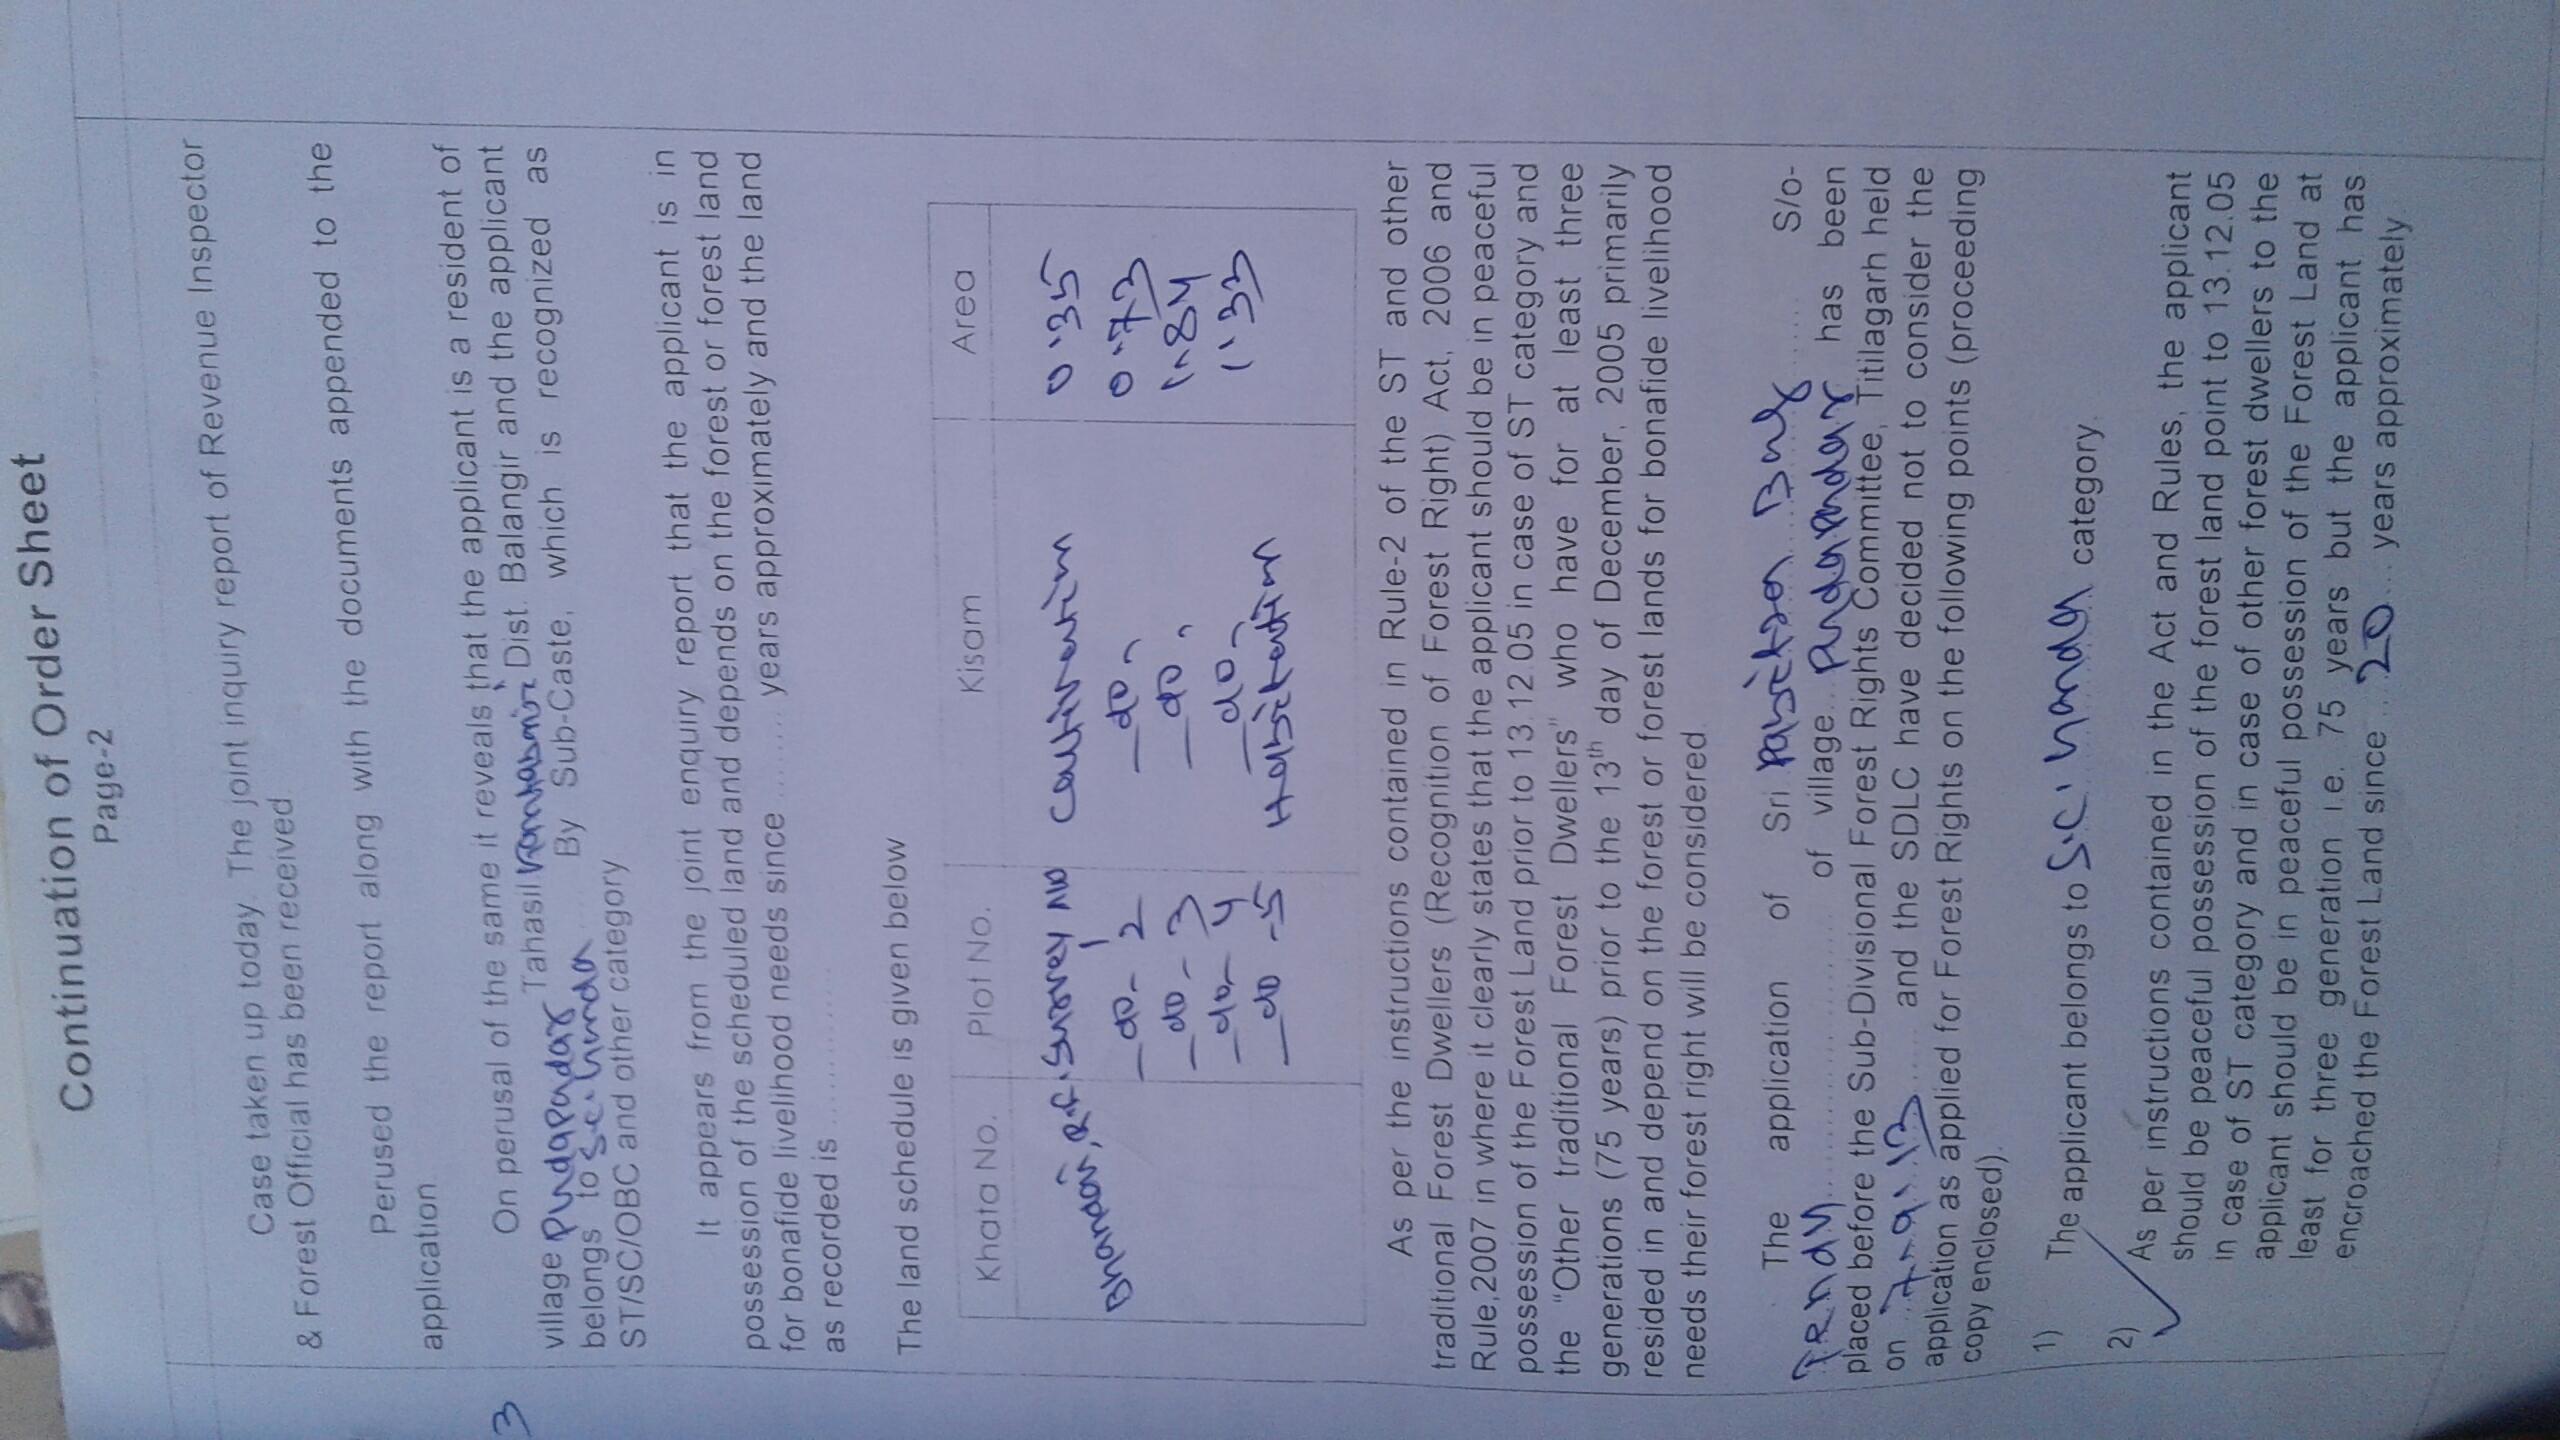 Continuation of Order Sheet
Page-2
Case taken up today. The joint inquiry report of Revenue Inspector
& Forest Official has been received
Perused the report along with the documents appended to the
application.
3
On perusal of the same it reveals that the applicant is a resident of
village Pudapadar Tahasil Dist. Balangir and the applicant
belongs to SC. By Sub-Caste, which is recognized as
ST/SC/OBC and other category
It appears from the joint enquiry report that the applicant is in
possession of the scheduled land and depends on the forest or forest land
for bonafide livelihood needs since ......... years approximately and the land
as recorded is ..............
The land schedule is given below
Khata No. Plot No. Kisam Area
R.F. Survey No 1 0.35
-do- 2 -do- 0.73
-do- 3 -do- 1.84
-do- 4 -do- 1.33
-do -5 Habitation
As per the instructions contained in Rule-2 of the ST and other
traditional Forest Dwellers (Recognition of Forest Right) Act, 2006 and
Rule,2007 in where it clearly states that the applicant should be in peaceful
possession of the Forest Land prior to 13.12.05 in case of ST category and
the "Other traditional Forest Dwellers" who have for at least three
generations (75 years) prior to the 13th day of December, 2005 primarily
resided in and depend on the forest or forest lands for bonafide livelihood
needs their forest right will be considered.
The application of Sri Pabitra S/o-
of village Pudapadar has been
placed before the Sub-Divisional Forest Rights Committee, Titilagarh held
on 7.9.13 and the SDLC have decided not to consider the
application as applied for Forest Rights on the following points (proceeding
copy enclosed).
1) The applicant belongs to S.C. category.
2) As per instructions contained in the Act and Rules, the applicant
should be peaceful possession of the forest land point to 13.12.05
in case of ST category and in case of other forest dwellers to the
applicant should be in peaceful possession of the Forest Land at
least for three generation i.e. 75 years but the applicant has
encroached the Forest Land since 20 years approximately